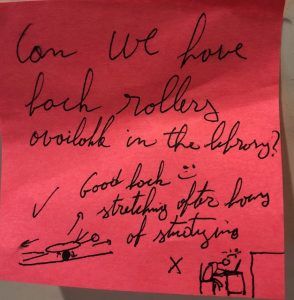 Can we have
back rollers
available in the library?
Good back :)
stretching after hours
of studying